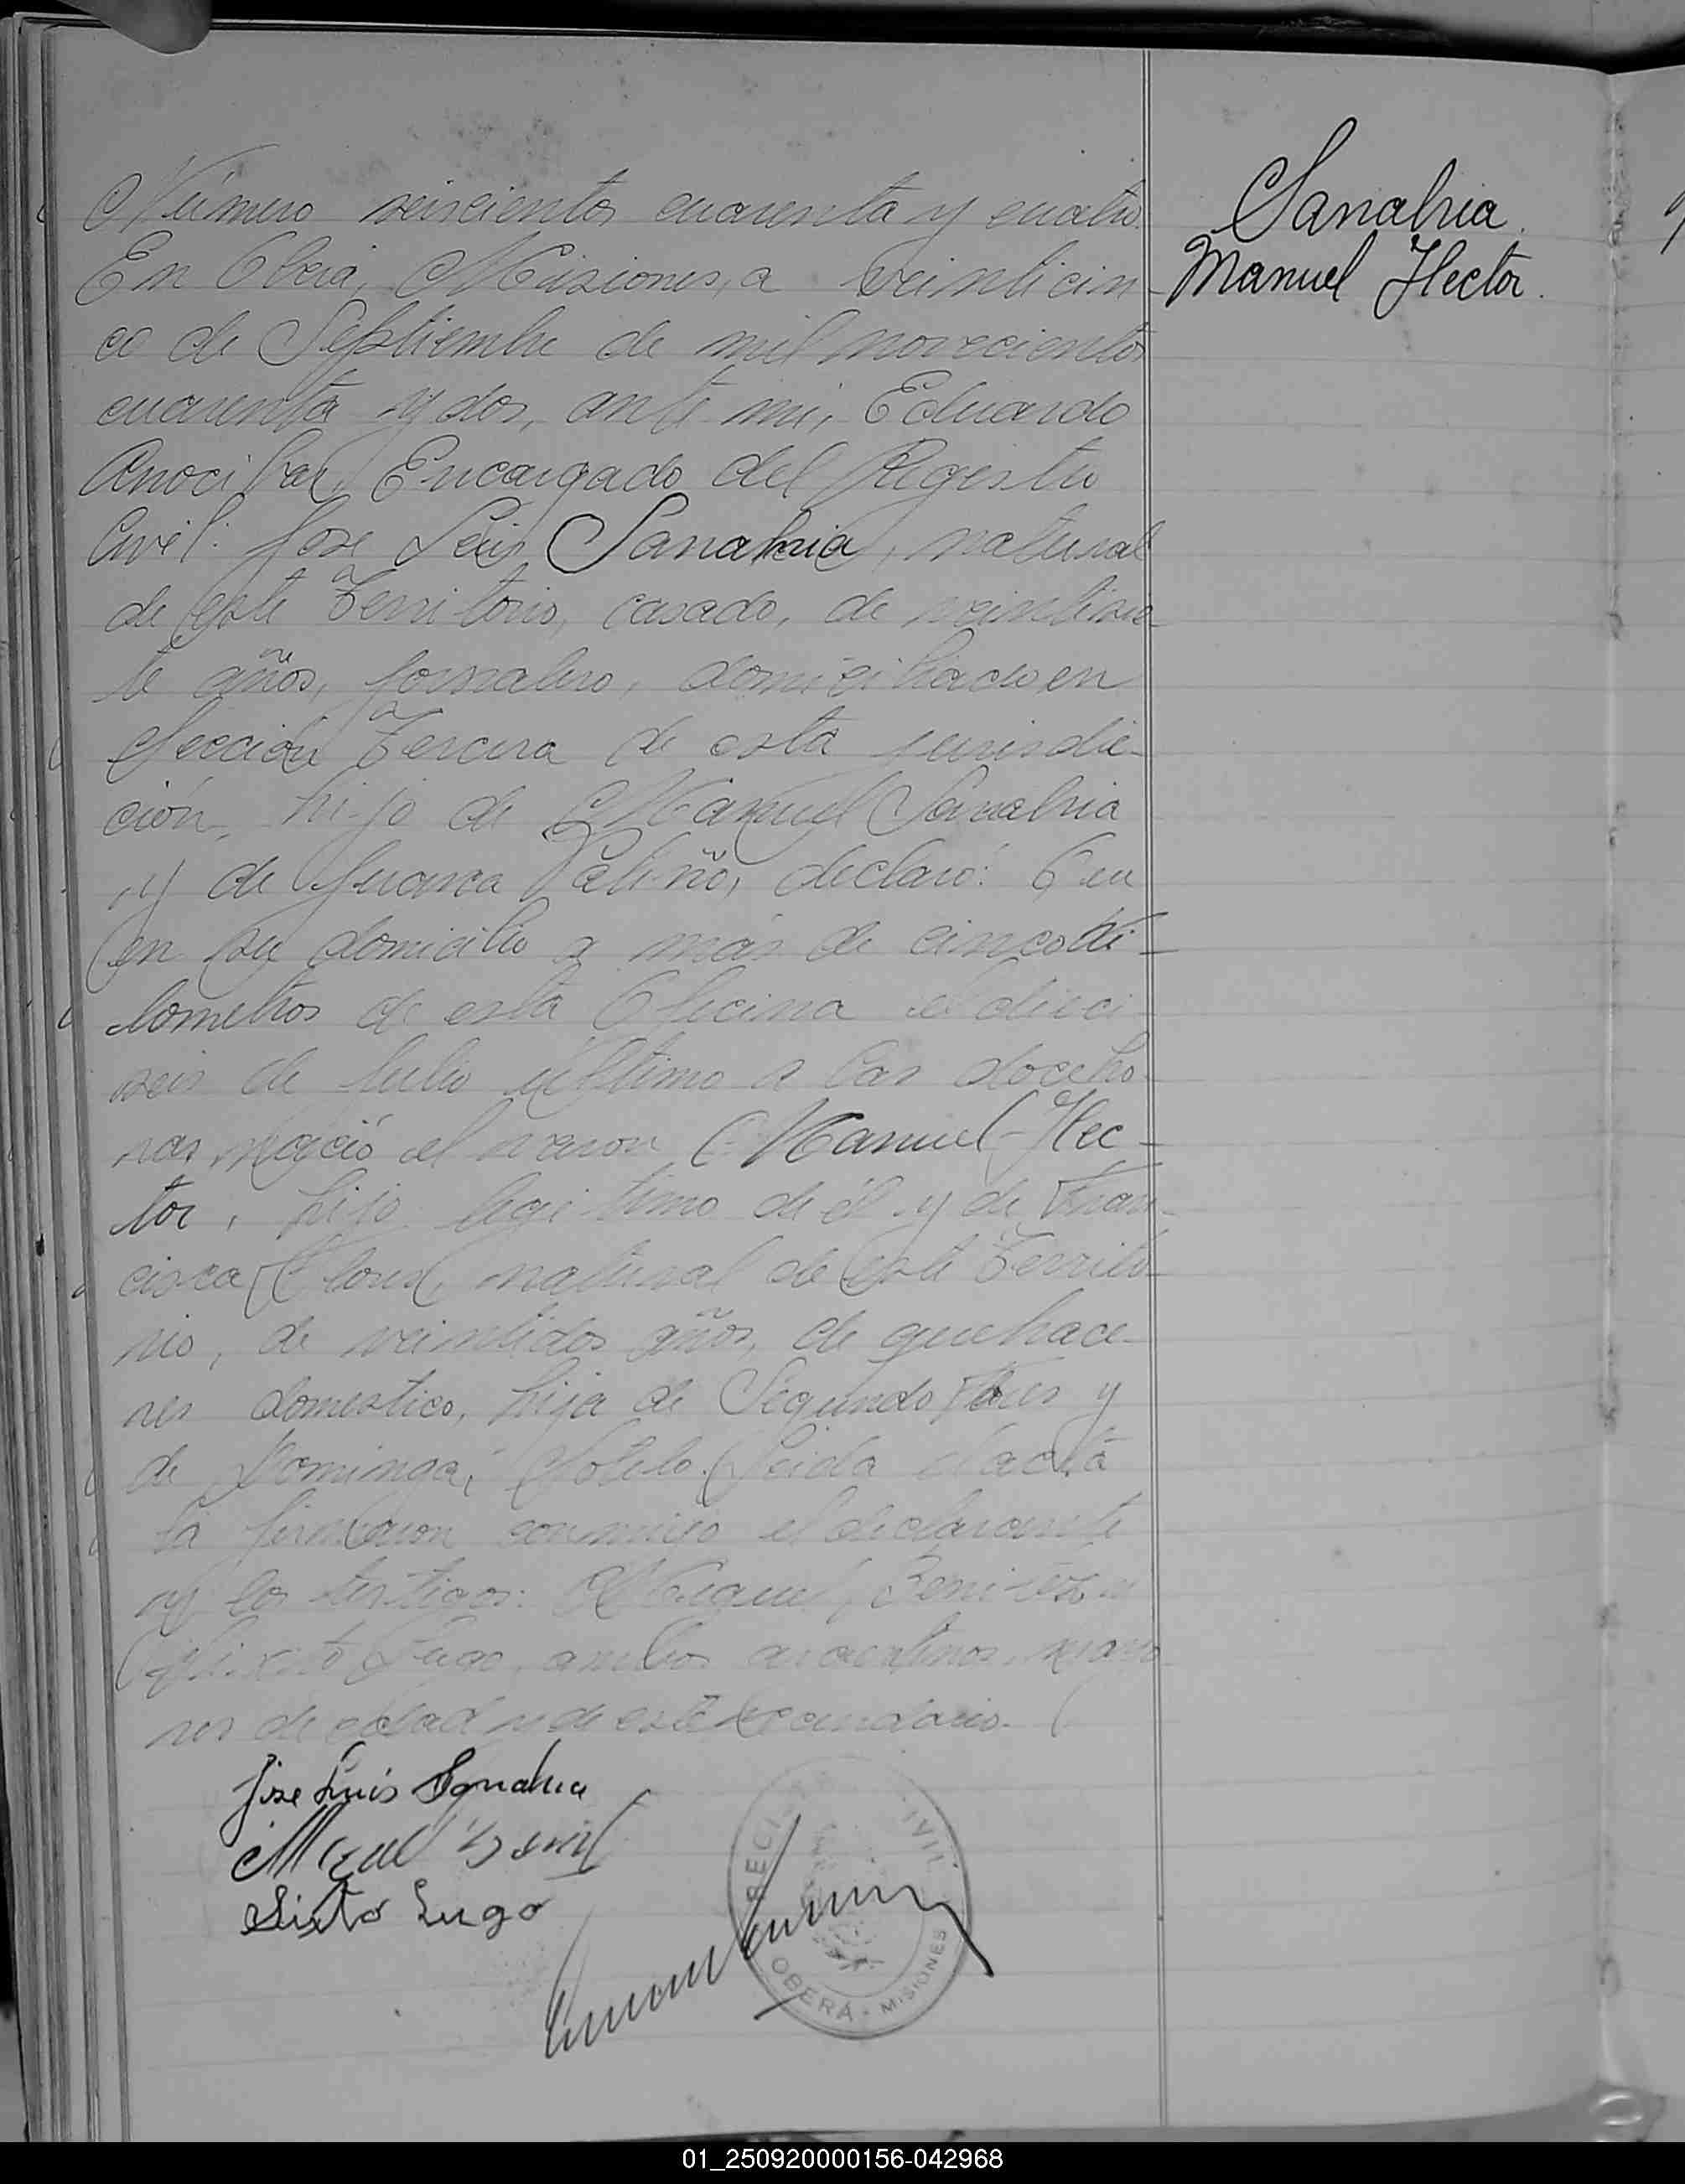 Sanabria.
Manuel Hector.
Número seiscientos cuarenta y cuatro.
En Oberá, Misiones, a veinticin-
co de Septiembre de mil novecientos
cuarenta y dos, ante mi, Eduardo
Anocibar, Encargado del Registro
Civil: Jose Luis Sanabria, natural
de este Territorio, casado, de veintisie-
te años, jornalero, domiciliado en
Sección Tercera de esta jurisdic-
ción, hijo de Manuel Sanabria
y de Juana Patiño, declaró: Que
en su domicilio a más de cinco ki-
lometros de esta Oficina el dieci
seis de Julio último a las doce ho-
ras nació el varon Manuel Hec-
tor, hijo legitimo de él y de Fran-
cisca natural de este Territo-
rio, de veintidos años, de quehace-
res domestico, hija de Segundo y
de Dominga Sotelo. Leida el acta
la firmaron conmigo el declarante
y los testigos: Miguel Benitez y
Sixto Lugo, ambos argentinos, mayo
res de edad y de este vecindario.
Jose Luis Sanabria
Sixto Lugo
OBERÁ - MISIONES
01_250920000156-042968